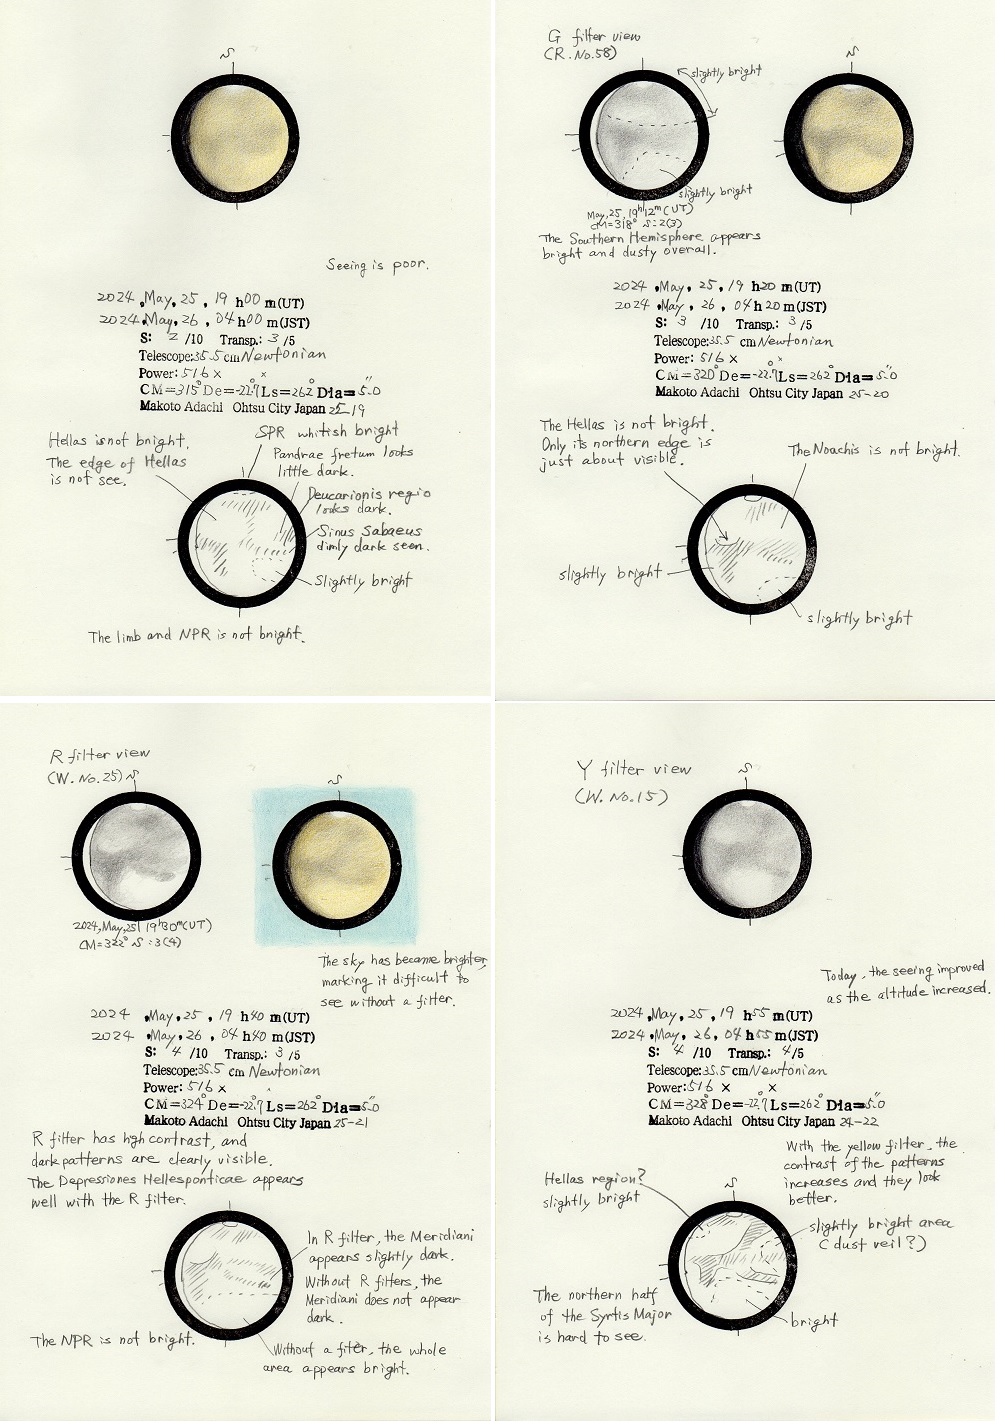 S
Seeing is poor.
2024 ,May, 25 , 19 h00 m(UT)
2024 ,May, 26 , 04 h00 m(JST)
S: 2 /10 Transp.: 3 /5
Telescope:35.5 cm Newtonian
Power: 516 × ×
CM=315° De=-22.°7 Ls=262° Dia=5."0
Makoto Adachi Ohtsu City Japan 25-19
Hellas is not bright.
The edge of Hellas
is not see.
SPR whitish bright
Pandrae fretum looks
little dark.
Deucarionis regio
looks dark.
Sinus Sabaeus
dimly dark seen.
Slightly bright
The limb and NPR is not bright.
G filter view
(R.No.58)
S
slightly bright
slightly bright
May, 25, 19h12m (UT)
CM=318° S:2(3)
The Southern Hemisphere appears
bright and dusty overall.
2024 ,May, 25, 19 h20 m(UT)
2024 ,May, 26 , 04 h20 m(JST)
S: 3 /10 Transp.: 3 /5
Telescope:35.5 cm Newtonian
Power: 516 × ×
CM=320° De=-22.°7 Ls=262° Dia=5."0
Makoto Adachi Ohtsu City Japan 25-20
The Hellas is not bright.
Only its northern edge is
just about visible.
The Noachis is not bright.
slightly bright
slightly bright
R filter view
(W. No. 25)
S
S
2024, May, 25, 19h30m (UT)
CM=322° S:3(4)
The sky has became brighter,
marking it difficult to
see without a filter.
2024 ,May, 25 , 19 h40 m(UT)
2024 ,May, 26 , 04 h40 m(JST)
S: 4 /10 Transp.: 3 /5
Telescope:35.5 cm Newtonian
Power: 516 × ×
CM=324° De=-22.°7 Ls=262° Dia=5."0
Makoto Adachi Ohtsu City Japan 25-21
R filter has high contrast, and
dark patterns are clearly visible.
The Depressiones Hellesponticae appears
well with the R filter.
In R filter, the Meridiani
appears slightly dark.
Without R filters, the
Meridiani does not appear
dark.
The NPR is not bright.
Without a filter, the whole
area appears bright.
Y filter view
(W. No.15)
S
Today, the seeing improved
as the altitude increased.
2024 ,May, 25 , 19 h55 m(UT)
2024 ,May, 26, 04 h55 m(JST)
S: 4 /10 Transp.: 4/5
Telescope:35.5 cm Newtonian
Power:516 × ×
CM=328° De=-22.°7 Ls=262° Dia=5."0
Makoto Adachi Ohtsu City Japan 24-22
With the yellow filter, the
contrast of the patterns
increases and they look
better.
Hellas region?
slightly bright
S
slightly bright area
(dust veil?)
The northern half
of the Syrtis Major
is hard to see.
bright